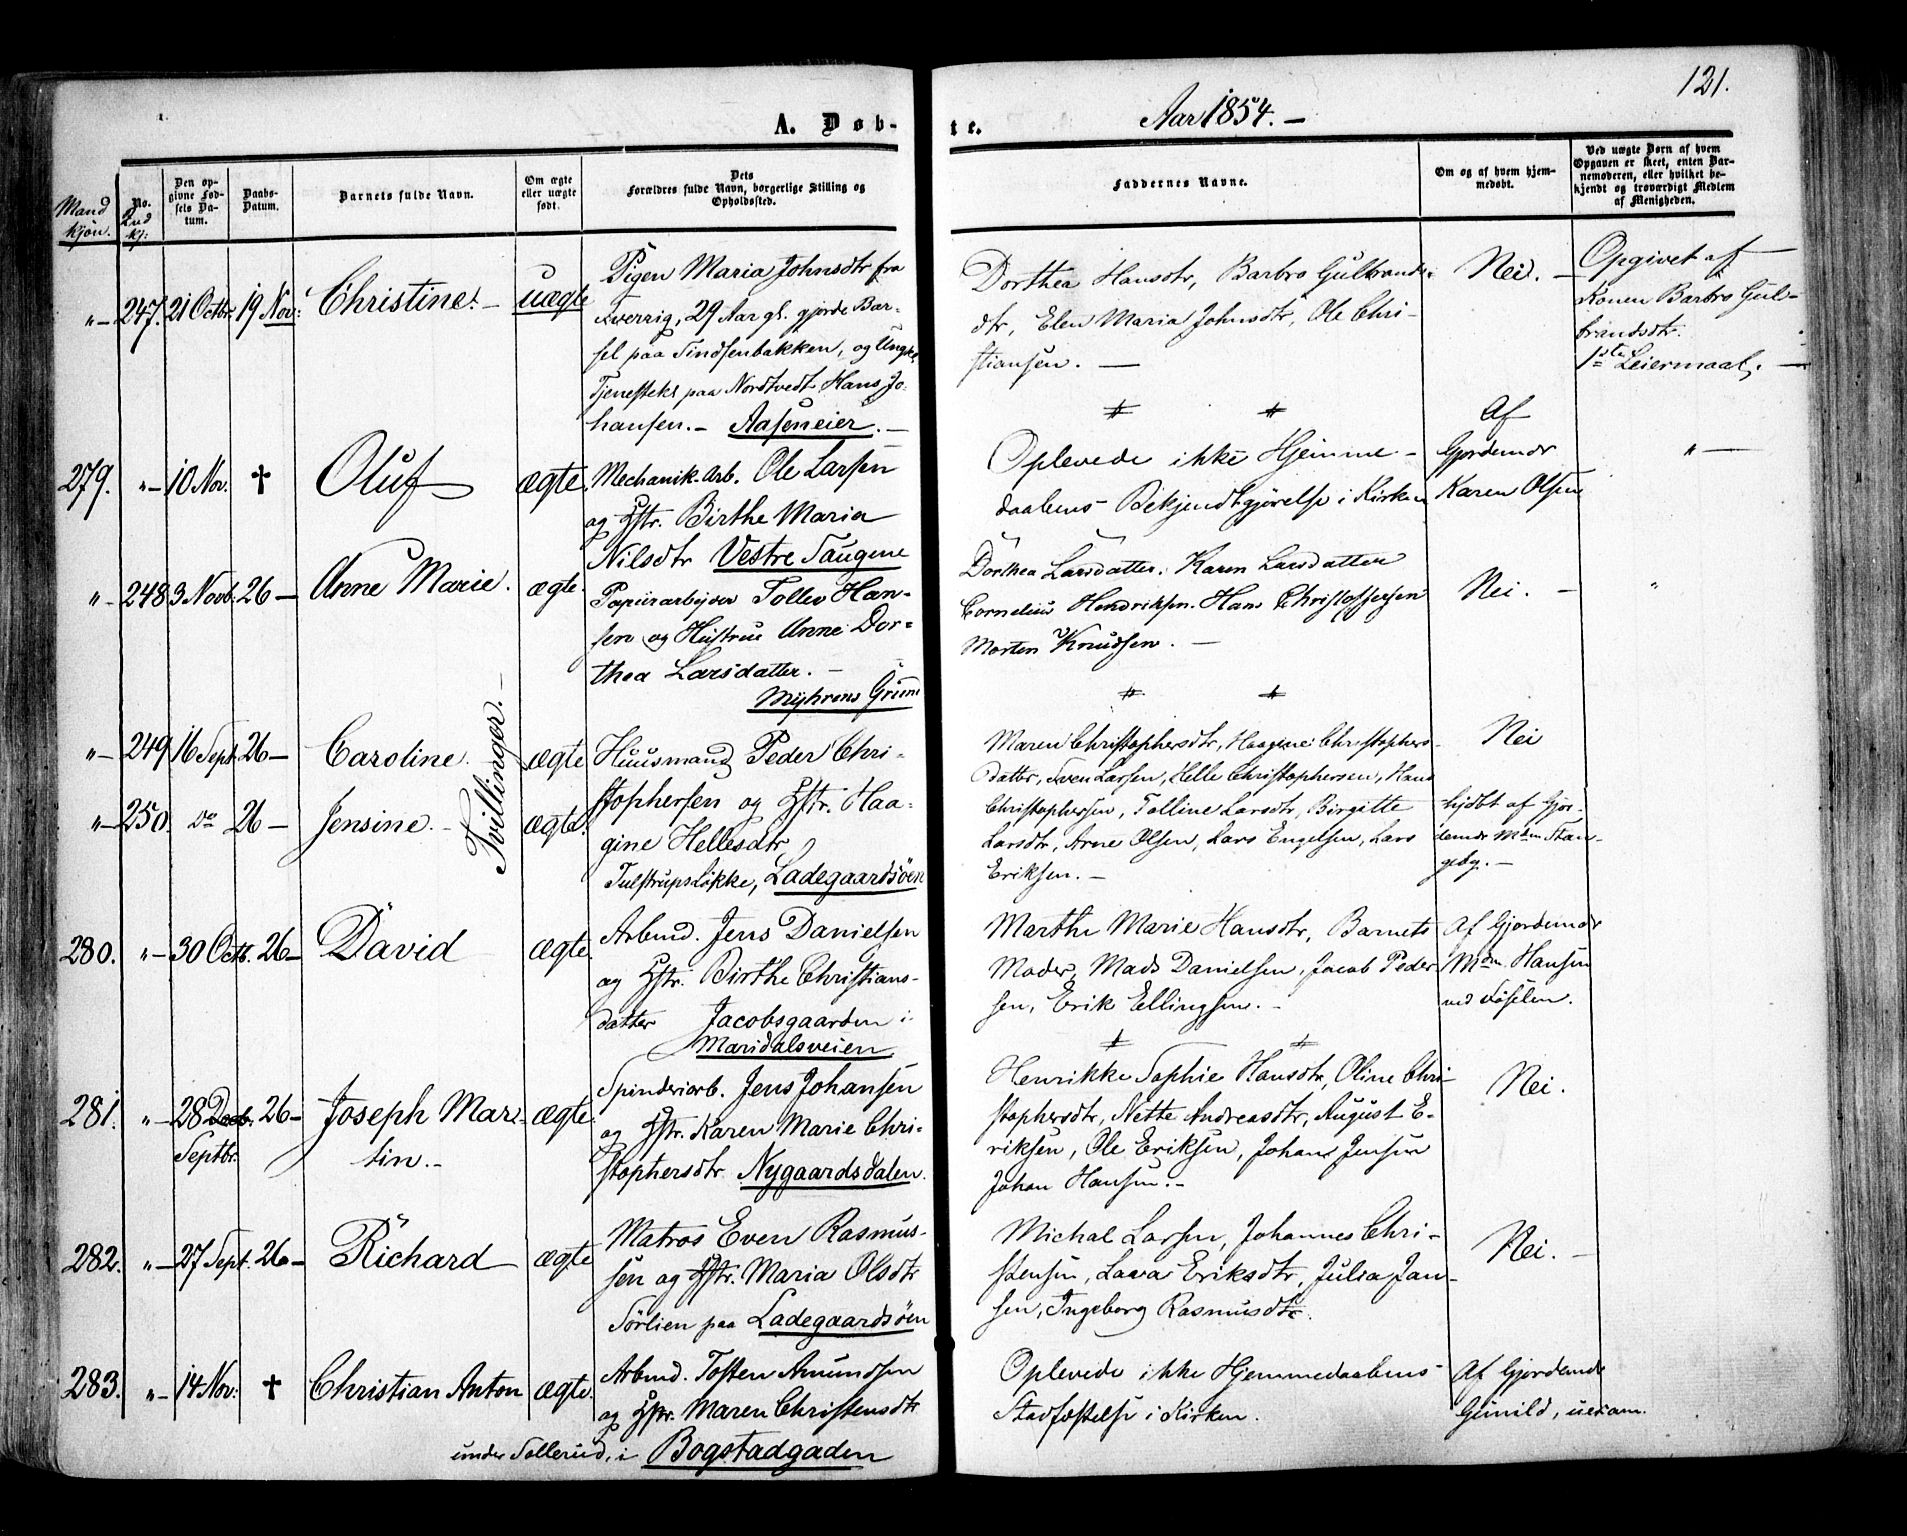 121.
A. Døb-
te.
Aar 1854. —
Mandkjøn.
No.
Qvd kj:
Den opgivne Fødsels Datum.
Daabs-Datum.
Barnets fulde Navn.
Om ægte eller uægte født.
Dets Forældres fulde Navn, borgerlige Stilling og Opholdssted.
Faddernes Navne.
Om og af hvem hjemmedøbt.
Ved uægte Børn af hvem Opgaven er skeet, enten Barnemoderen, eller hvilket bekjendt og troværdigt Medlem af Menigheden.
"— 247. 21 Octbr. 19 Nov: Christine. — uægte
Pigen Maria Johnsdtr fra
Sverrig, 29 Aar gl. gjorde Bar-
sel paa Tindsenbakken, og Ungk.
Tjenestekl paa Nordtvedt Hans Jo-
hansen. — Aaseneier. —
Dorthea Hansdtr, Barbro Gulbrands-
dtr, Elen Maria Johnsdtr, Ole Chri-
stiansen. —
Nei. —
Opgivet af
Konen Barbro Gul-
brandsdtr.
1ste Leiermaal. —
279. "— 10 Nov. † Oluf ægte.
Mechanik. Arb. Ole Larsen
og Hstr. Birthe Maria
Nilsdtr Vestre Saugene
Oplevede ikke Hjemme-
daabens Bekjendtgjørelse i Kirken
Af
Gjordemor
Karen Olsen
"—
"— 248 3 Novb. 26 — Anne Marie. ægte.
Papiirarbeider Tollev Han-
sen og Hustrue Anne Dor-
thea Larsdatter. —
Myhrens Grund
Dorthea Larsdatter. Karen Larsdatter
Cornelius Hendriksen. Hans Christoffersen
Morten Knudsen. —
Nei. —
"
"— 249 16 Sept. 26 — Caroline. ægte
"— 250. do 26 — Jensine. — ægte.
Tvillinger. —
Huusmand Peder Chri-
stophersen og Hstr. Haa-
gine Hellesdtr
Tulstrupsløkke, Ladegaardsøen
Maren Christophersdtr, Haagine Christophers-
datter, Sven Larsen, Helle Christophersen, Hans
Christophersen, Talline Larsdtr, Birgitte
Larsdtr, Arne Olsen, Lars Engelsen, Lars
Eriksen. —
Nei
hjdbt af Gjor-
demor Mdm Stan-
geby. —
280. "— 30 Octb. 26 — David ægte.
Arbmd. Jens Danielsen
og Hstr. Birthe Christians-
datter Jacobsgaarden i
Maridalsveien
Marthe Marie Hansdtr, Barnets
Moder, Mads Danielsen, Jacob Peder-
sen, Erik Ellingsen. —
Af Gjordemor
Mdm Hansen
ved
281. "— 28 Septbr. 26 — Joseph Mar-
tin. — ægte.
Spinderiarb. Jens Johansen
og Hstr. Karen Marie Chri-
stophersdtr Nygaardsdalen.
Henrikke Sophie Hansdtr, Oline Chri-
stophersdtr, Nette Andreasdtr, August E-
riksen, Ole Eriksen, Johans Jensen
Johan Hansen. —
Nei.
282. "— 27 Sept. 26 — Richard ægte
Matros Even Rasmus-
sen og Hstr. Maria Olsdtr
Sørlien paa Ladegaardsøen
Michal Larsen, Johannes Chri-
stensen, Lava Eriksdtr, Julia Jan-
sen, Ingeborg Rasmusdtr.
Nei. —
283. "— 14 Nov: † Christian Anton ægte.
Arbmd. Tosten Amundsen
og Hstr. Maren Christensdtr
under Sollerud, i Bogstadgaden
Oplevede ikke Hjemmedaabens
Stadfæstelse i Kirken.
Af Gjordemdr
Gunild,